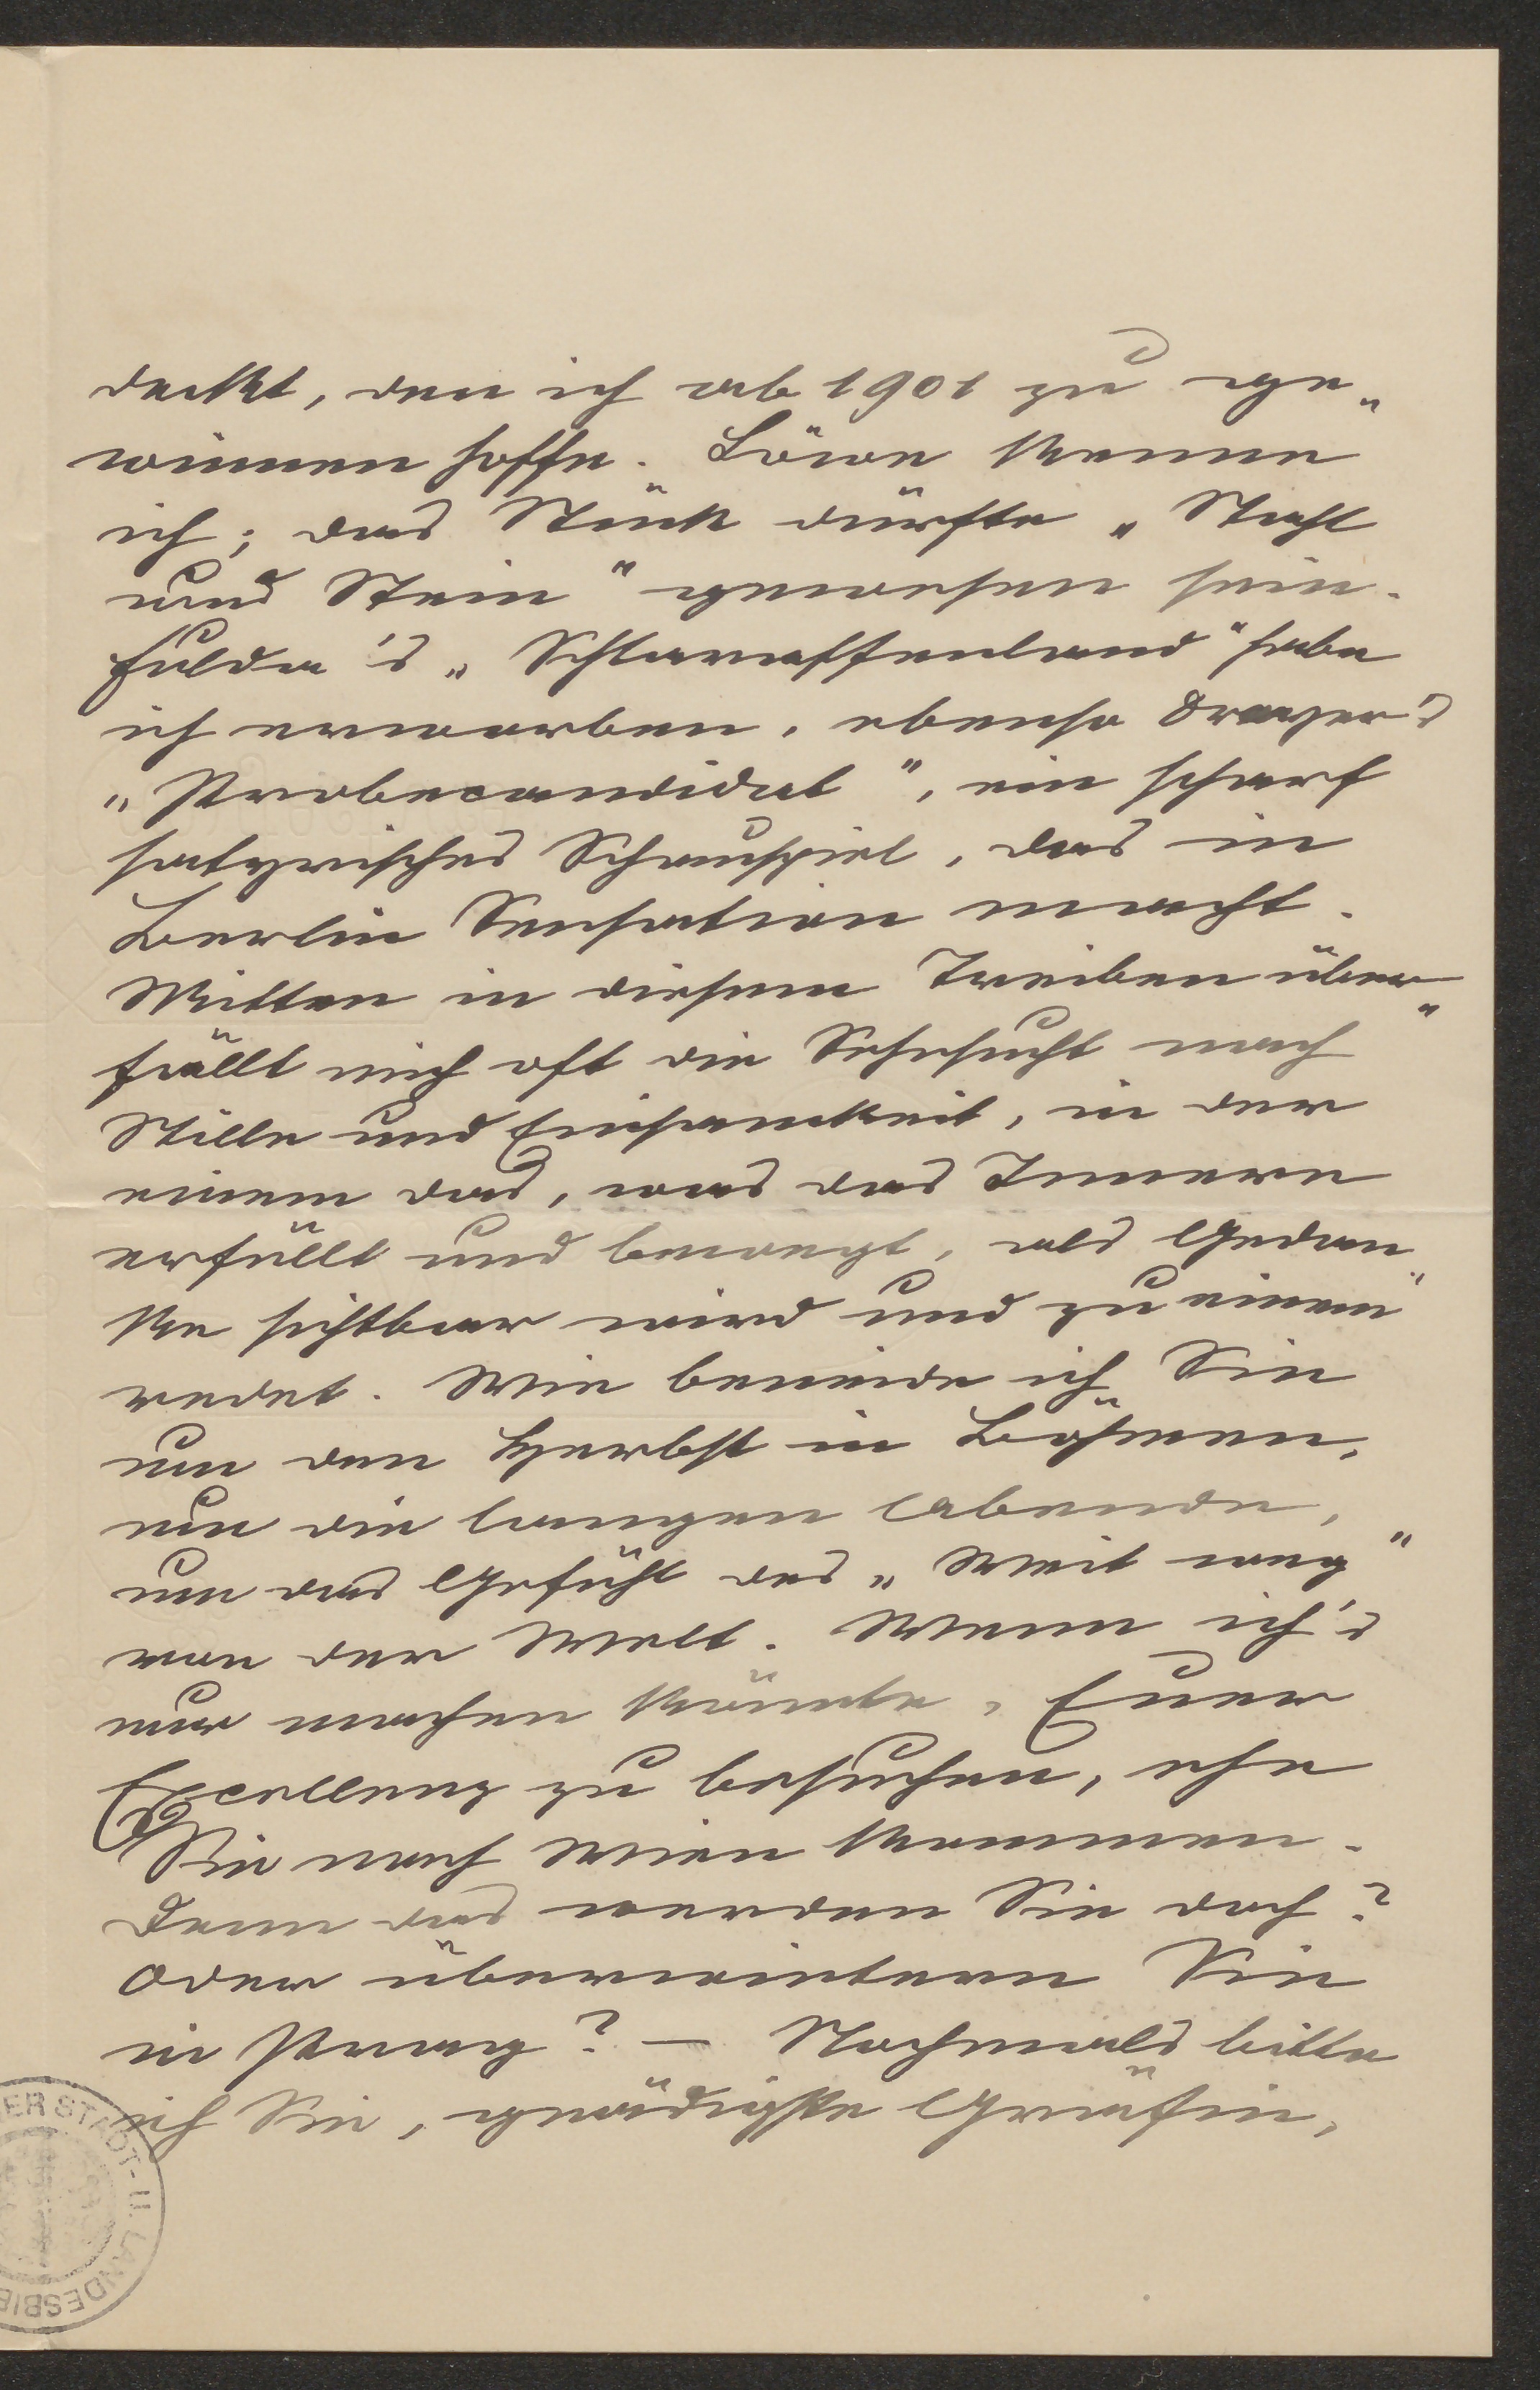 deckt, den ich ab 1901 zu ge„
winnen hoffe. Löwe kenne
ich; das Stück dürfte „Stahl
und Stein“ gewesen sein.
Fulda's „Schlaraffenland“ habe
ich erworben, ebenso Dreyer's
„Probecandidat“, ein scharf
satyrisches Schauspiel, das in
Berlin Sensation macht.
Mitten in diesem Treiben über„
fällt mich oft die Sehnsucht nach
Stille und Einsamkeit, in der
einem das, was das Innere
erfüllt und bewegt, als Gedan„
ke sichtbar wird und zu einem
redet. Wie beneide ich Sie
um den Herbst in Böhmen,
um die langen Abende,
um das Gefühl des „Weit weg“
von der Welt. Wenn ich's
nur machen könnte, Euer
Excellenz zu besuchen, ehe
Sie nach Wien kommen.
Denn das werden Sie doch?
Oder überwintern Sie
in Prag? — Nochmals bitte
ich Sie, gnädigste Gräfin,
ER STADT- U. LANDESBIB